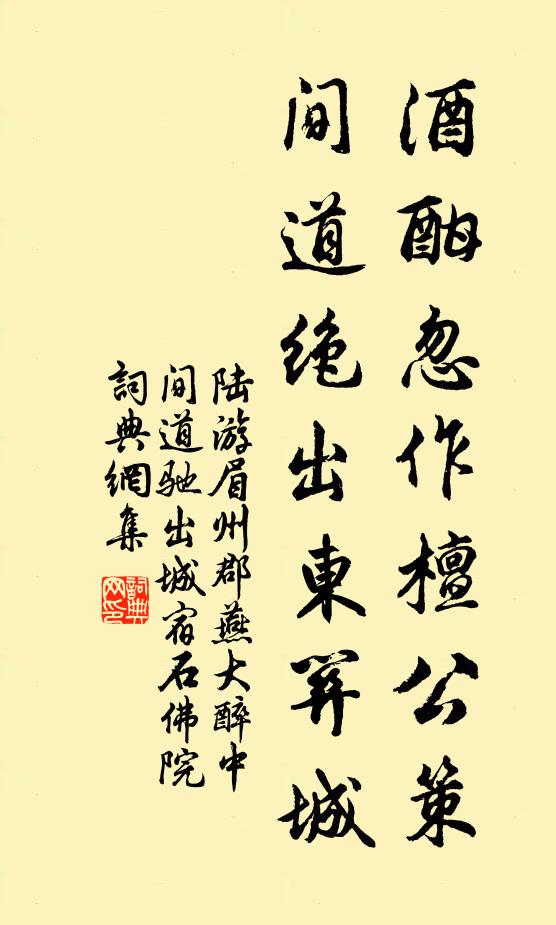 酒酣忽作檀公策
间道绝出東関城
陆游眉州郡燕大醉中
间道驰出城宿石佛院
詞典網集
詞典網印